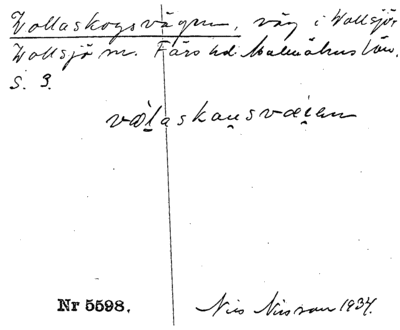 Vollaskogsvägen, väg i Vollsjö,
Vollsjö sn. Färs hd. Malmöhus län.
S. 3.
vålaskausvæien
Nr 5598.
Nils Nilsson 1934.